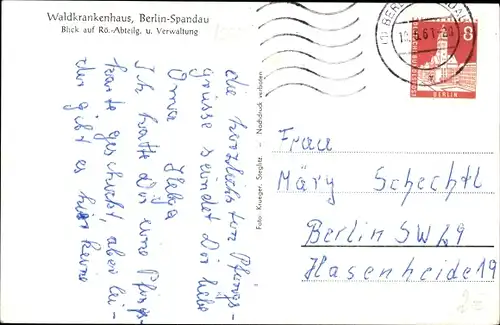 Waldkrankenhaus, Berlin-Spandau
Blick auf Rö.-Abteilg. u. Verwaltung
die herzlichsten Pfingst-
grüsse sendet Dir liebe
Oma Helga
Ich hätte Dir eine Pfingst-
karte geschickt, aber lei-
der gibt es hier keine
Foto: Krueger, Steglitz – Nachdruck verboten
8
BERLIN
Frau
Märy Schechtl
Berlin SW 29
Hasenheide 19